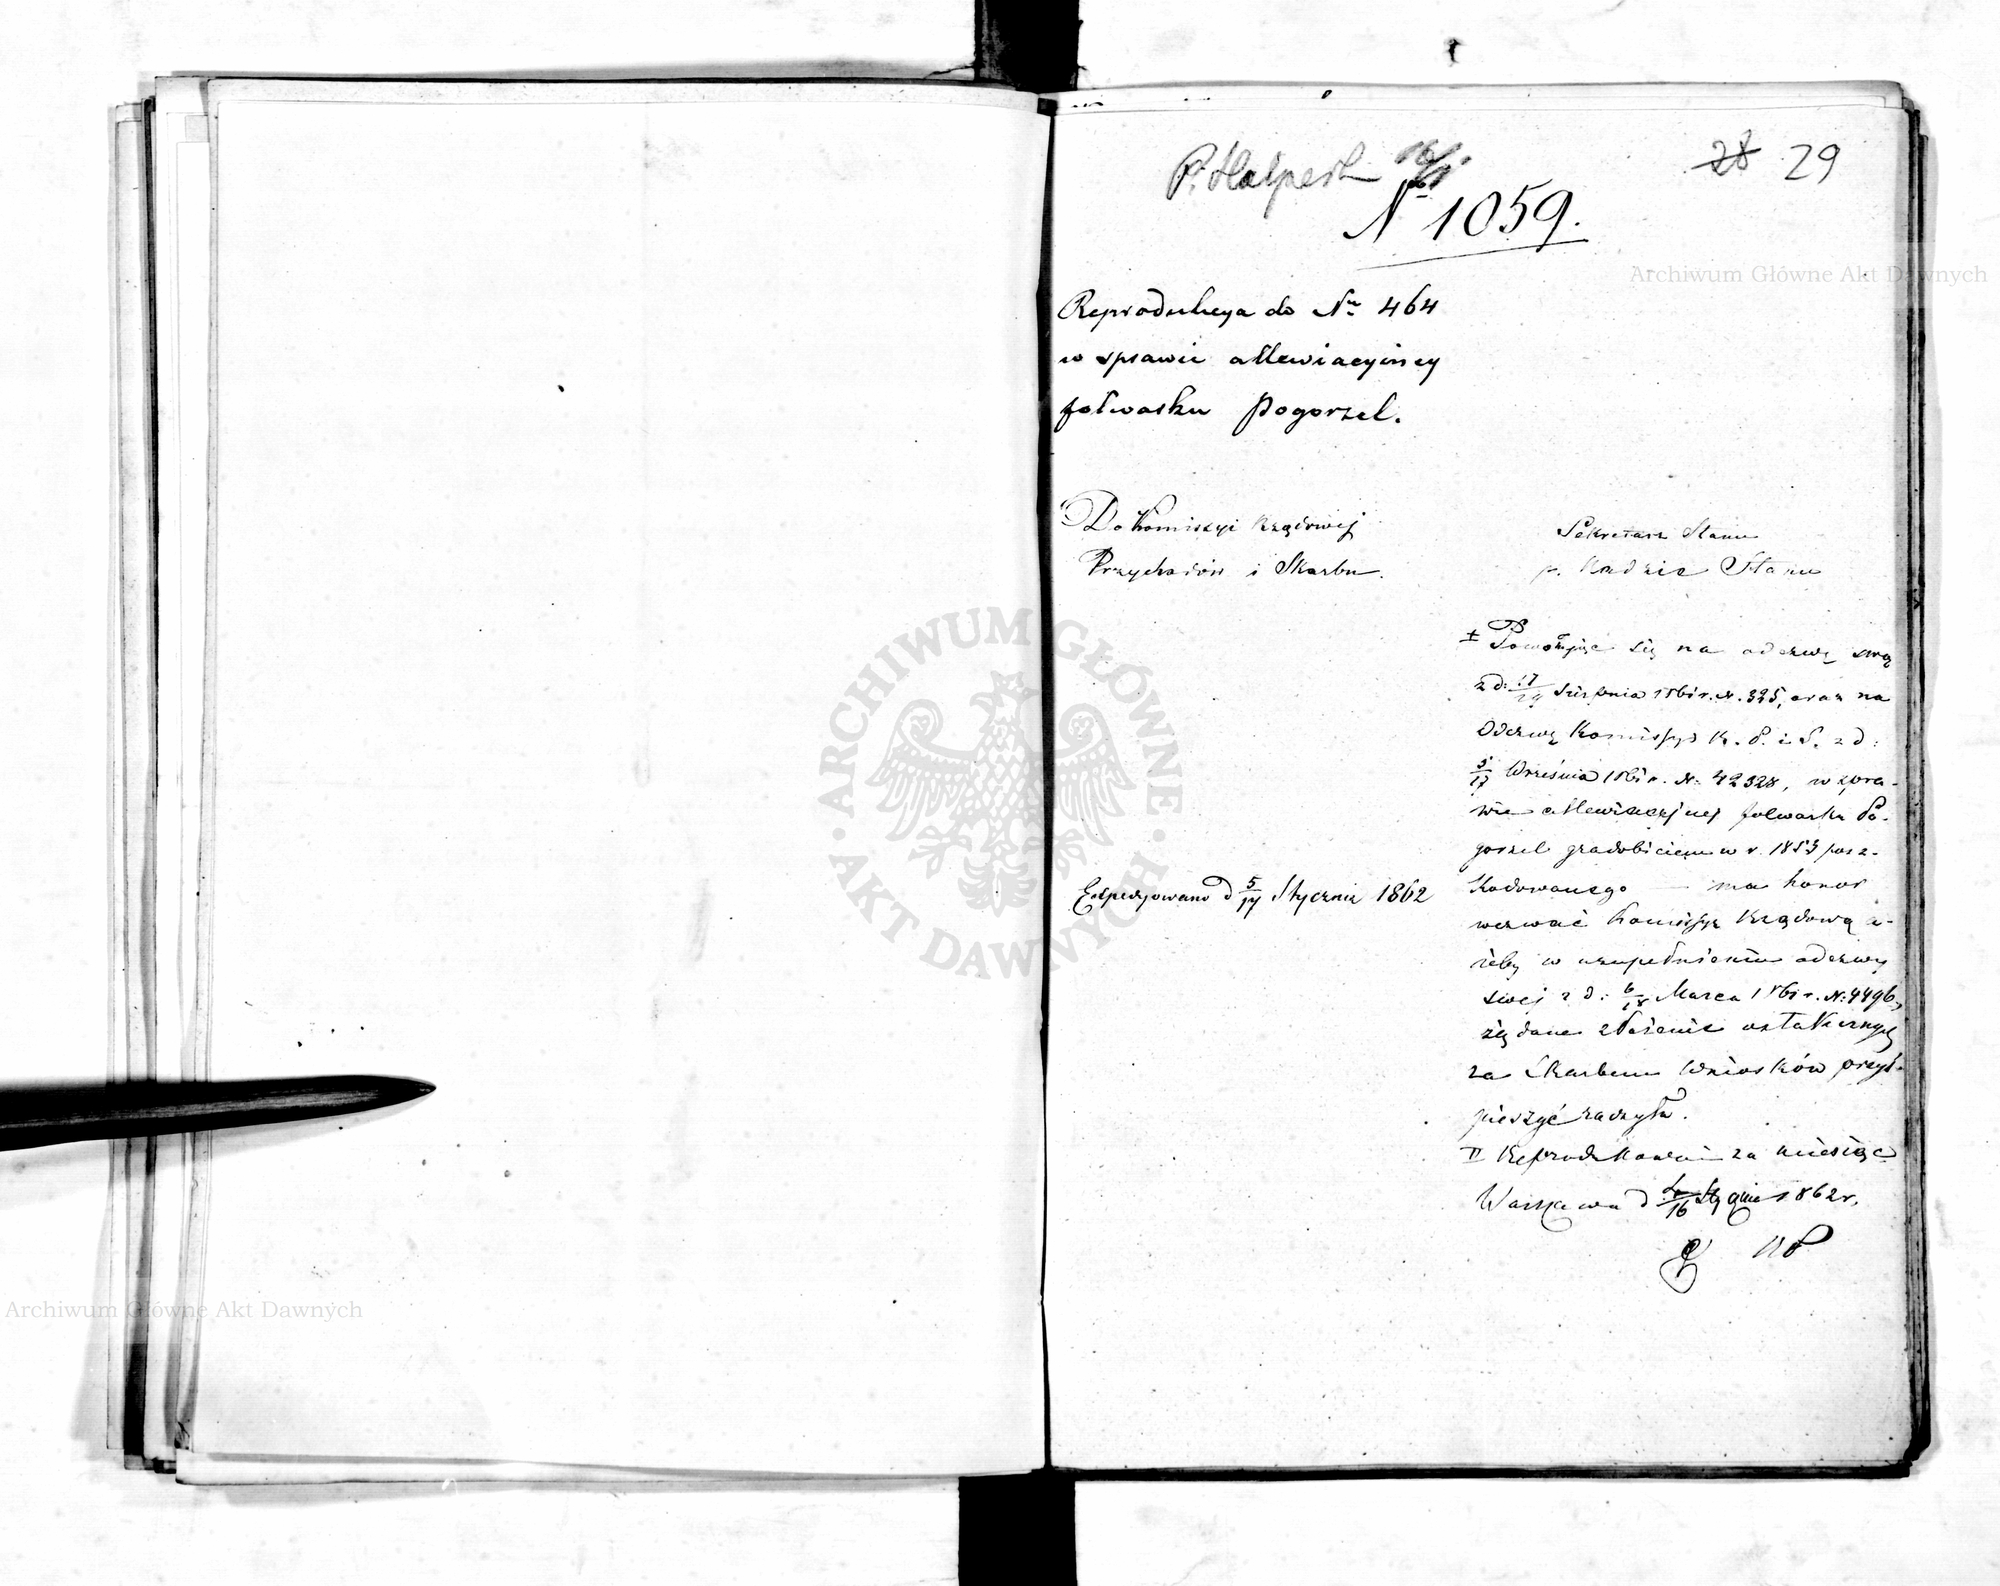 P. Halpert
28 29
Nº 1059.
Reprodukcya do Nru 464
w sprawie allewiacyjney
folwarku Pogorzel.
Do Kommissyi Rządowej
Przychodów i Skarbu.
Expedyowano d 5/17 Stycznia 1862
Sekretarz Stanu
p. Radzie Stanu
I Powołując się na odezwę swą
z d: 17/29 Sierpnia 1861 r. N. 325, oraz na
Odezwę Komissyi R. P. i S. z d:
5/17 Września 1861 r. N: 42328, w spra-
wie allewiacyjnej folwarku Po-
gorzel gradobiciem w r. 1853 posz-
kodowanego — ma honor
wezwać Komissyę Rządową a-
żeby w uzupełnieniu odezwy
swej z d: 6/18 Marca 1861 r. N: 4496,
żądane złożenie ostatecznych
za Skarbem Wniosków przyś-
pieszyć raczyła.
II Reprodukować za miesiąc
Warszawa d 4/16 Stycznia 1862 r.
Archiwum Główne Akt Dawnych
Archiwum Główne Akt Dawnych
ARCHIWUM GŁÓWNE · AKT DAWNYCH ·